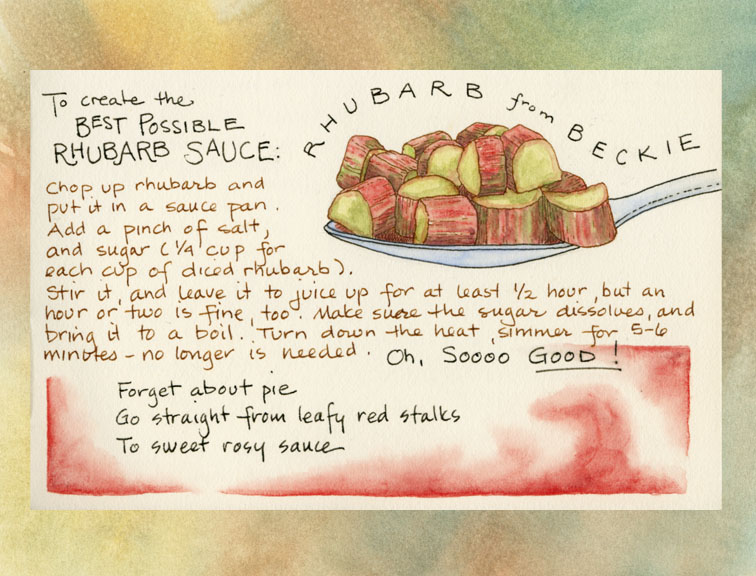 To create the
BEST POSSIBLE
RHUBARB SAUCE:
RHUBARB from BECKIE
Chop up rhubarb and
put it in a sauce pan.
Add a pinch of salt,
and sugar (1/4 cup for
each cup of diced rhubarb).
Stir it, and leave it to juice up for at least 1/2 hour, but an
hour or two is fine, too. Make suere the sugar dissolves, and
bring it to a boil. Turn down the heat, simmer for 5-6
minutes - no longer is needed. Oh, Soooo GOOD!
Forget about pie
Go straight from leafy red stalks
To sweet rosy sauce